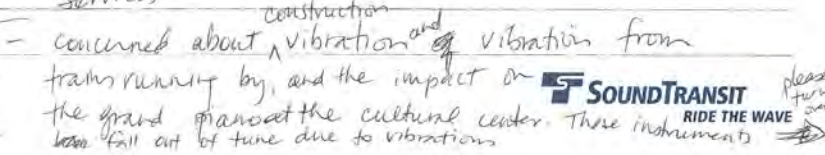 services
- concerned about construction vibration and vibration from
trains running by, and the impact on
the grand pianos at the cultural center. These instruments
fall out of tune due to vibrations
SOUNDTRANSIT
RIDE THE WAVE
please
turn
over